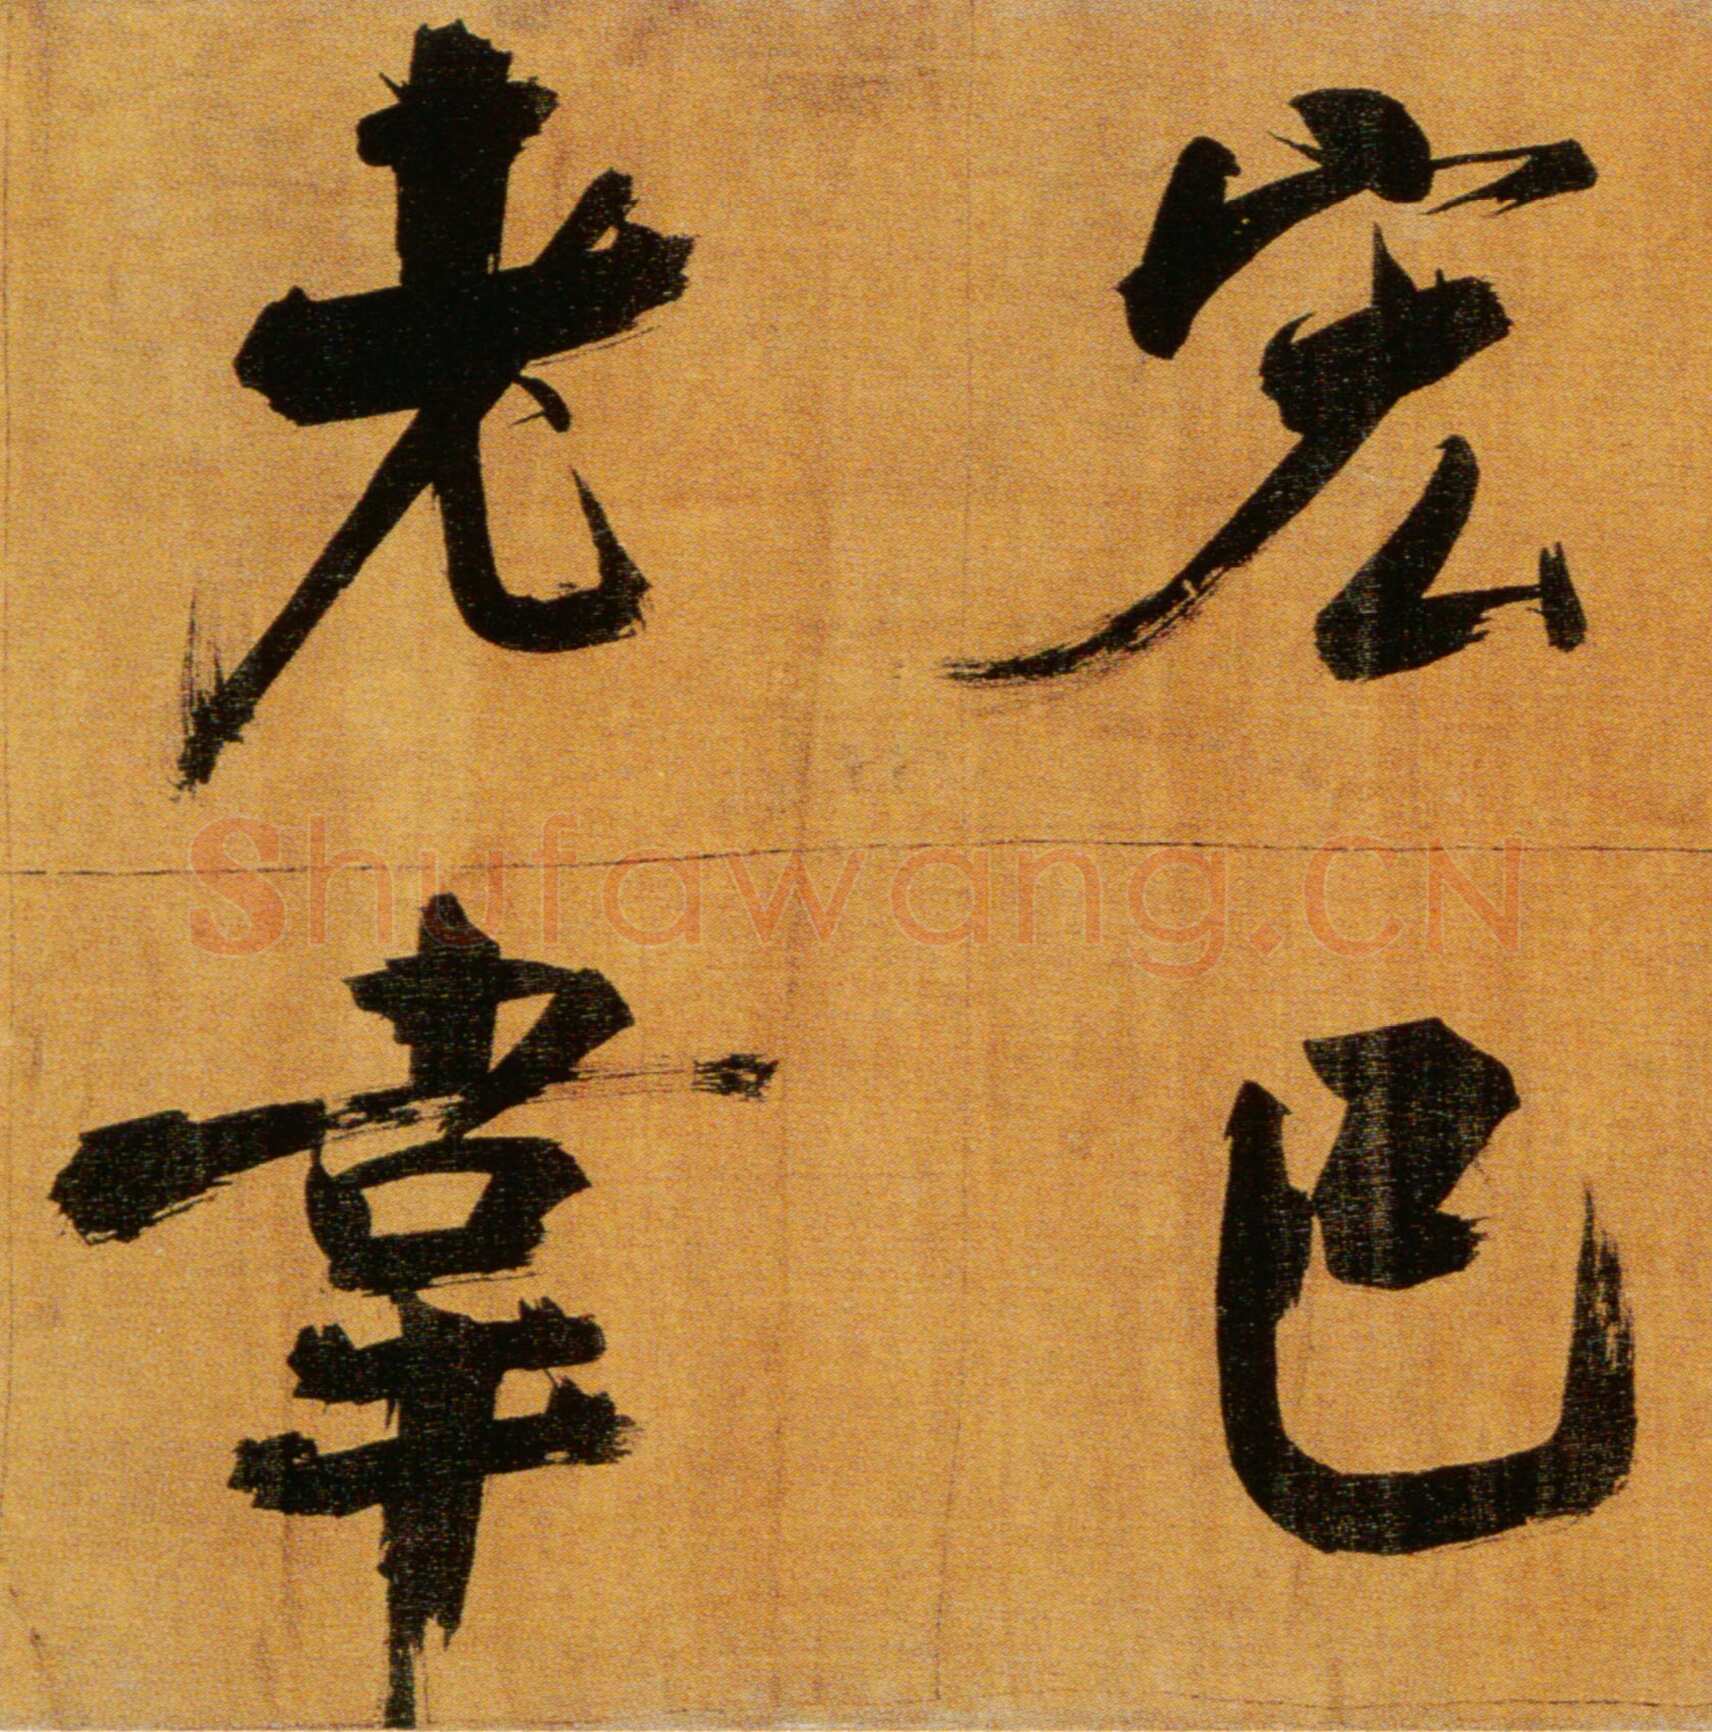 宏已
老韋
Shufawang.CN